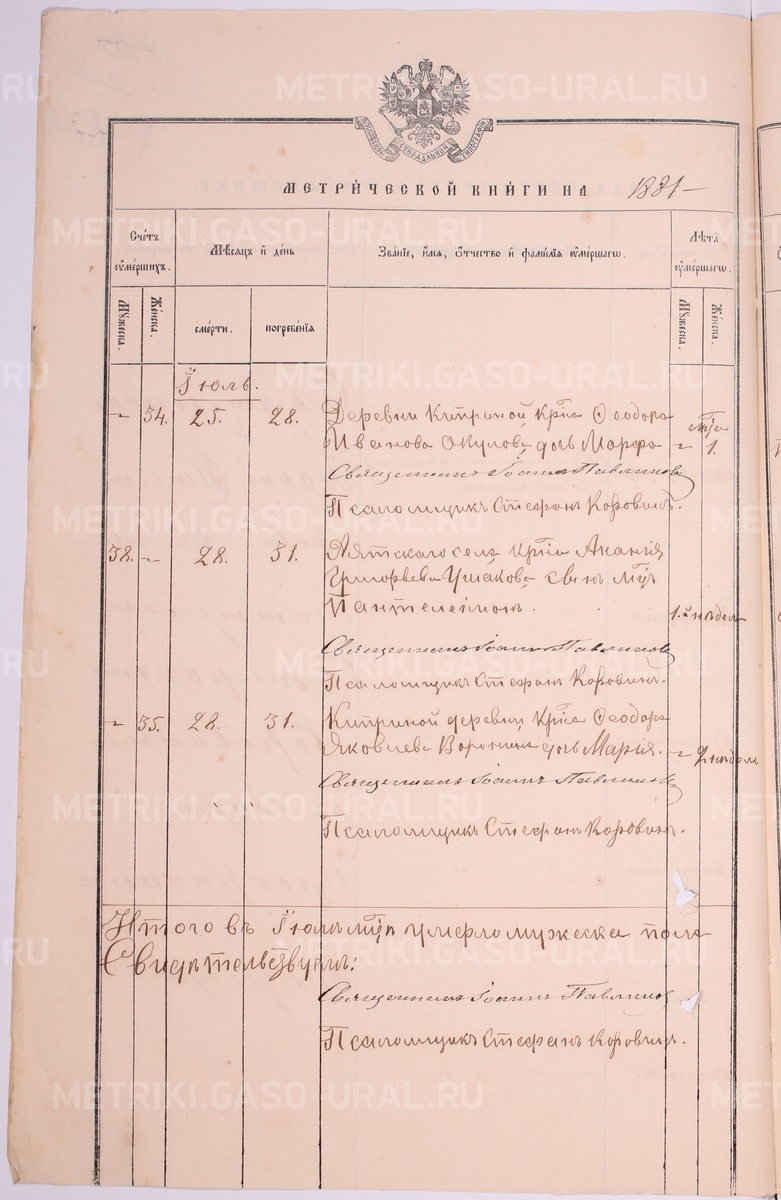 METRIKI.GASO-URAL.RU
МОСКОВСКОЙ СѴНОДАЛЬНОЙ ТИПОГРАФІИ
МЕТРИ́ЧЕСКОЙ КНИ́ГИ НА 1881 —
Сче́тъ ᲂу҆ме́ршихъ.
Мѣ́сяцъ и҆ де́нь
Зва́нїе, и҆́мя, ѻ҆́тчество и҆ фами́лїя ᲂу҆ме́ршагѡ.
Лѣ́та ᲂу҆ме́ршагѡ.
Мꙋ́жеска.
Же́нска.
сме́рти.
погребе́нїѧ
Мꙋ́жеска.
Же́нска.
Іюль.
„ 34. 25. 28. Деревни Киприной крна Ѳеодора
Иванова Окулова дочь Марѳа „ 1.
Священникъ Іоаннъ Павлиновъ
Псаломщикъ Стефанъ Коровинъ.
38. „ 28. 31. Аятскаго села крна Ананія
Григорьева Ушакова сынъ мцъ
Пантелеімонъ. 1. недели
Священникъ Іоаннъ Павлиновъ
Псаломщикъ Стефанъ Коровинъ.
„ 35. 28. 31. Киприной деревни крна Ѳеодора
Яковлева Воронина дочь Марія. „ 2 недель
Священникъ Іоаннъ Павлиновъ
Псаломщикъ Стефанъ Коровинъ.
Итого въ Іюлѣ мцѣ умерло мужеска пола
Свидѣтельствуемъ:
Священникъ Іоаннъ Павлиновъ
Псаломщикъ Стефанъ Коровинъ.